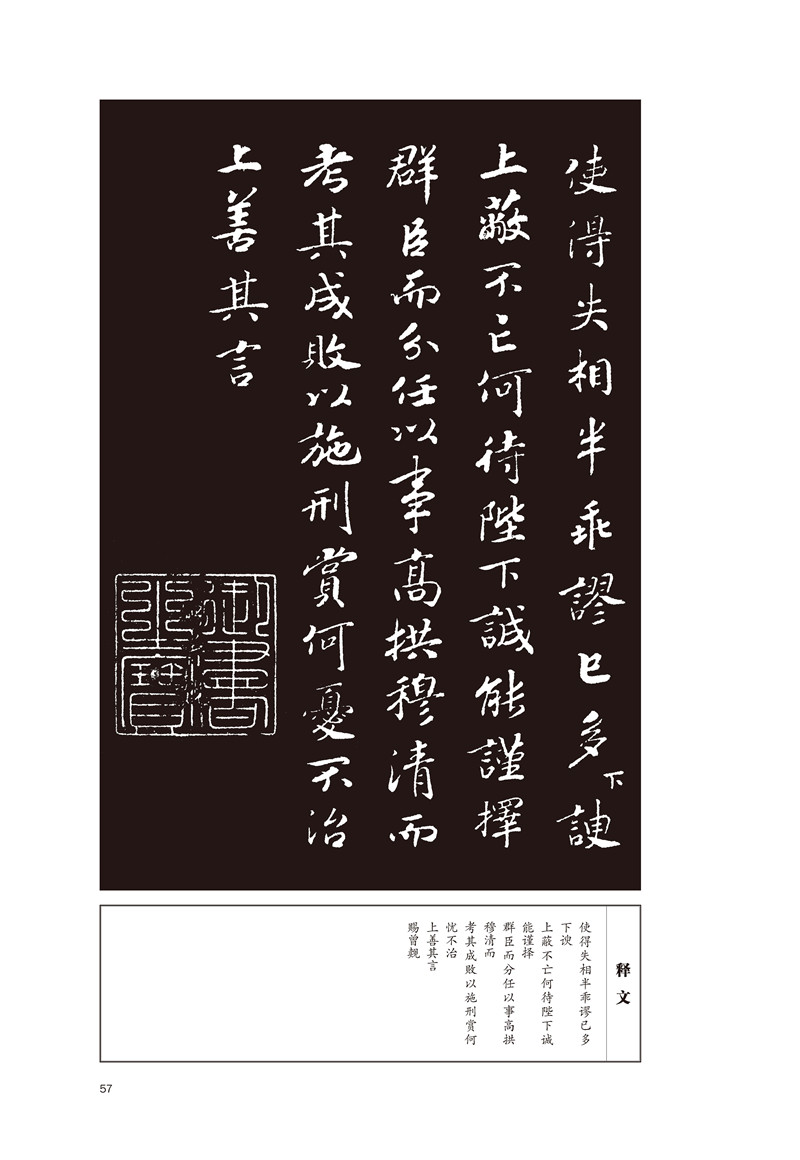 使得失相半乖謬已多下諛
上蔽不亡何待陛下誠能謹擇
群臣而分任以事高拱穆清而
考其成敗以施刑賞何憂不治
上善其言
释文
使得失相半乖谬已多
下谀
上蔽不亡何待陛下诚
能谨择
群臣而分任以事高拱
穆清而
考其成败以施刑赏何
忧不治
上善其言
赐曾觌
57